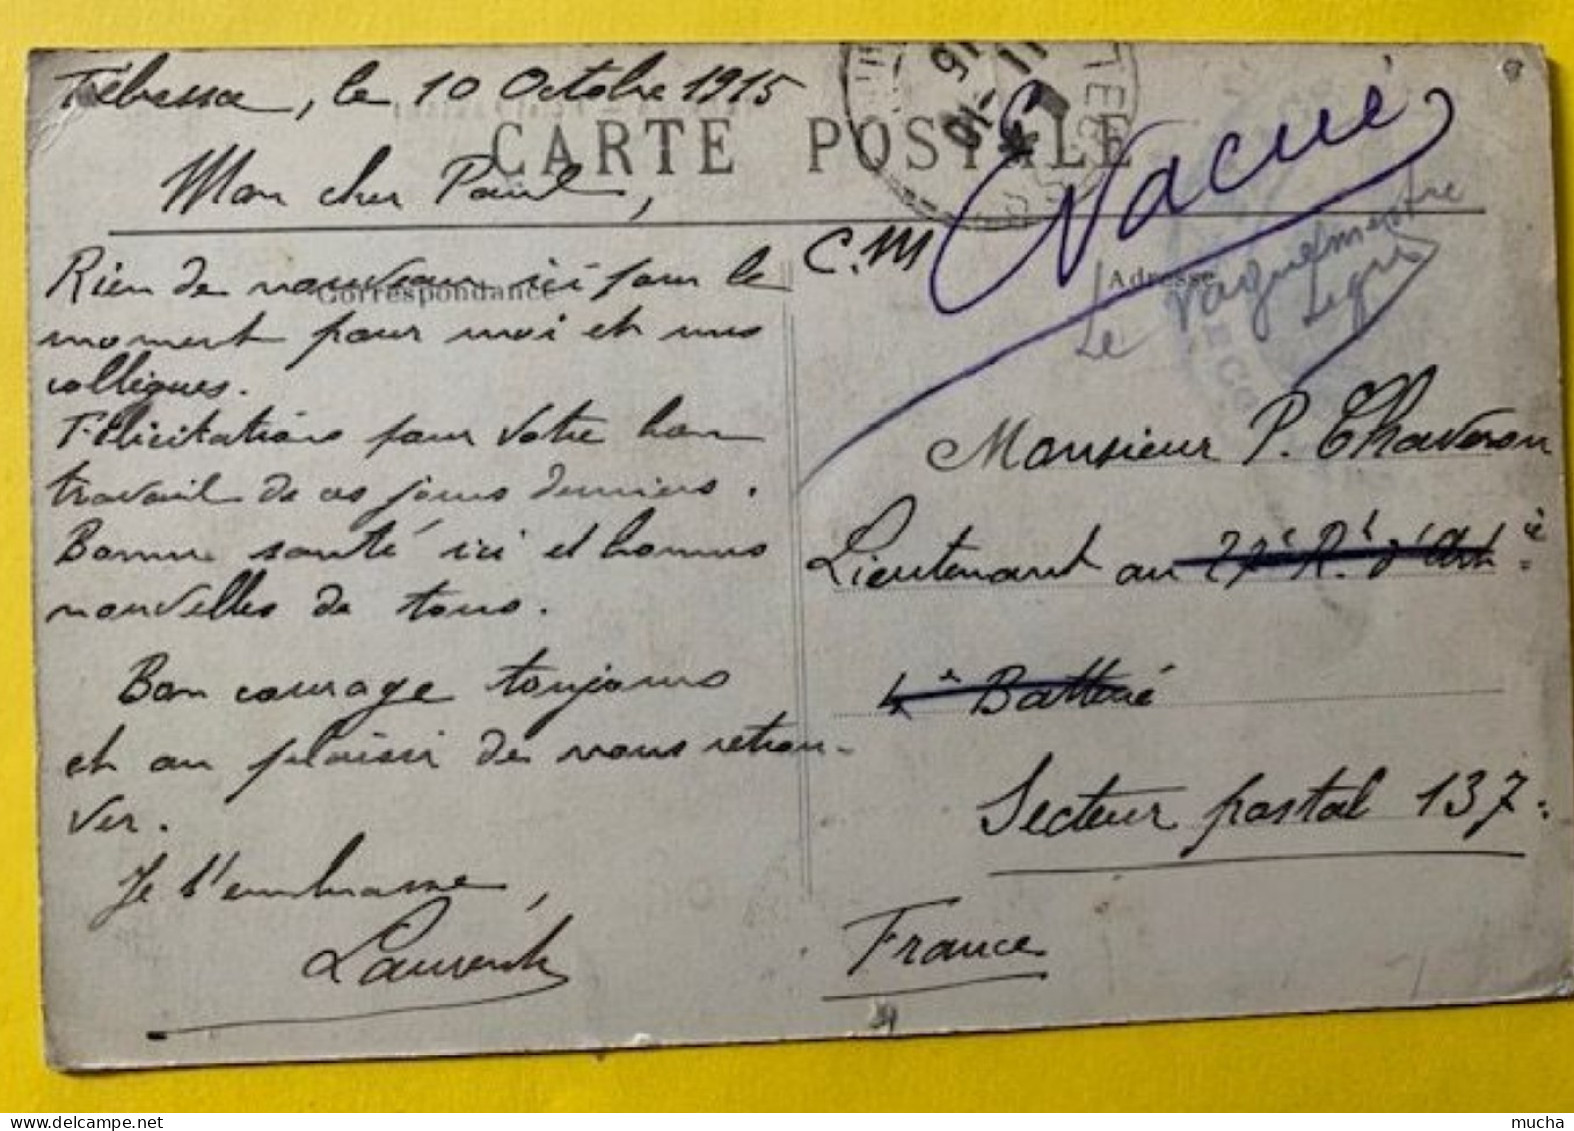 Tébessa, le 10 Octobre 1915
CARTE POSTALE
Mon cher Paul,
Correspondance
Rien de nouveau ici pour le
moment pour moi et mes
collègues.
Félicitations pour votre bon
travail de ces jours derniers.
Bonne santé ici et bonnes
nouvelles de tous.
Bon courage toujours
et au plaisir de vous retrou-
ver.
Je t'embrasse,
Laurent
C.M
Evacué
Adresse
Le Vaguemestre
Monsieur P. Chaveron
Lieutenant au 27e Rt d'Artie
4e Batterie
Secteur postal 137.
France
mucha